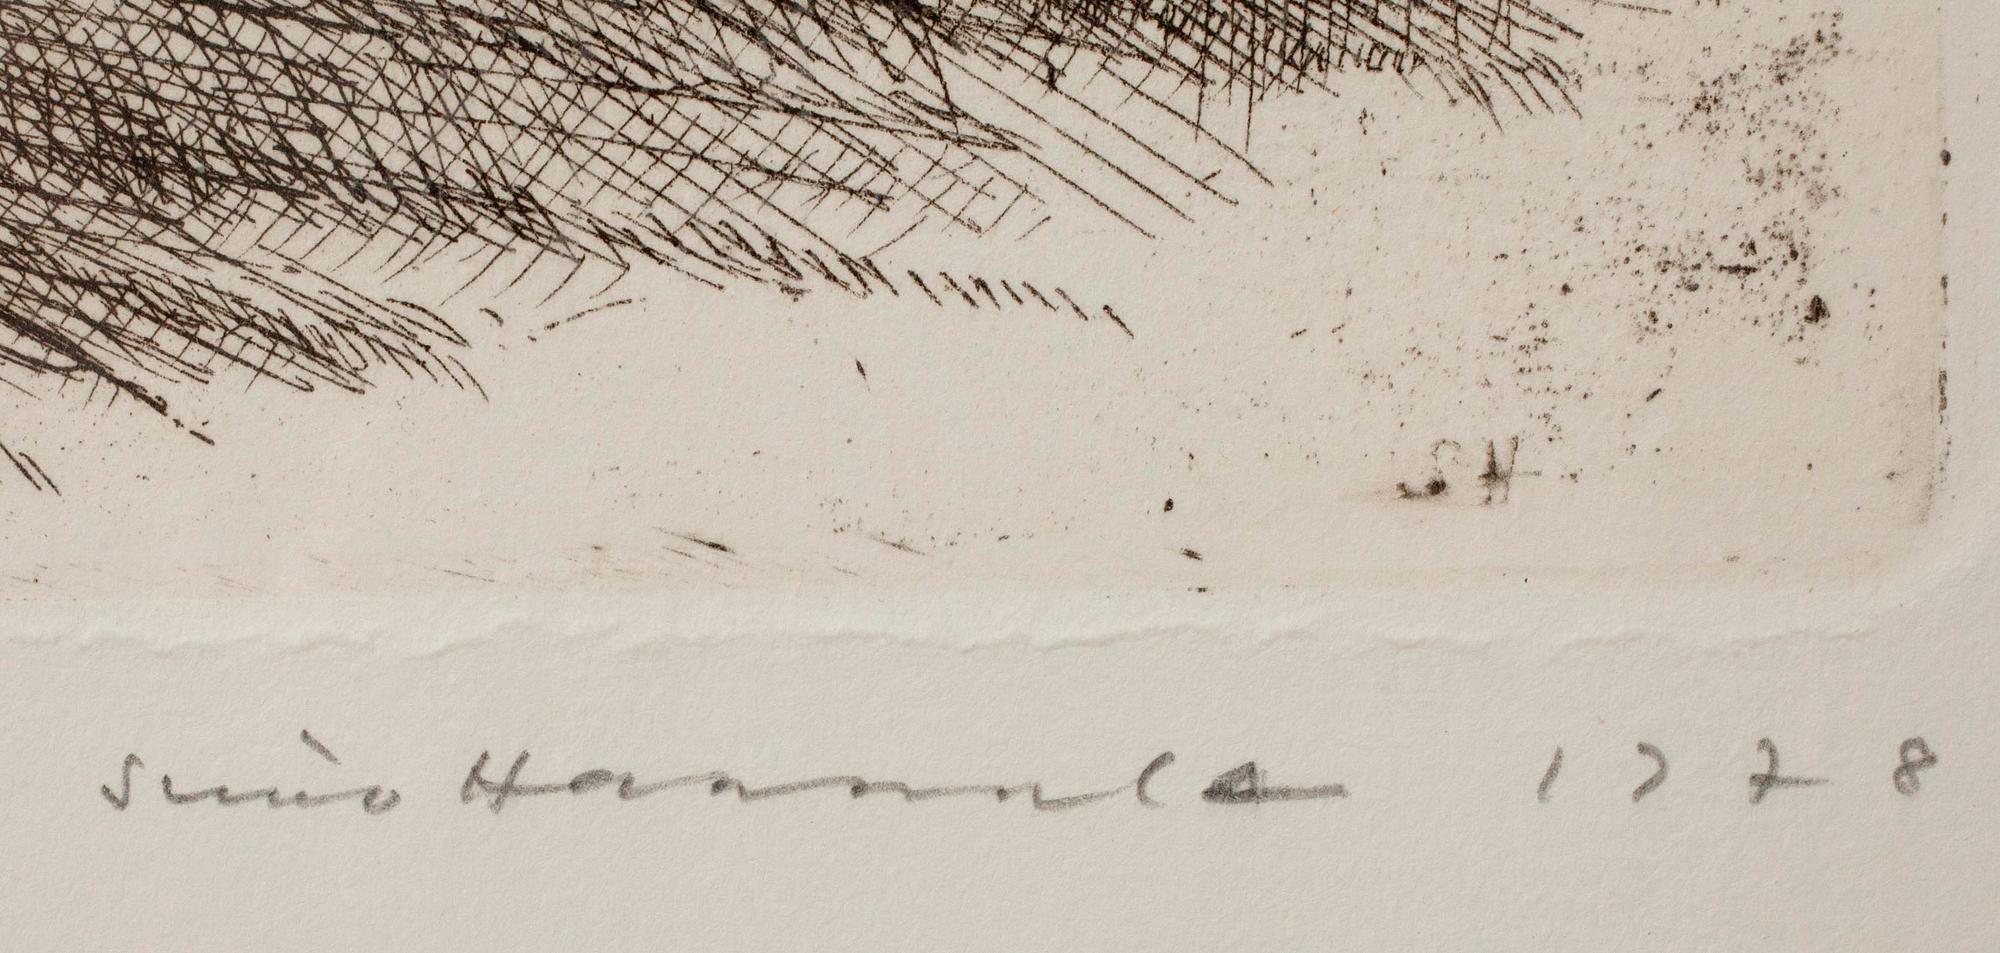 SH
Simo Hannula 1978